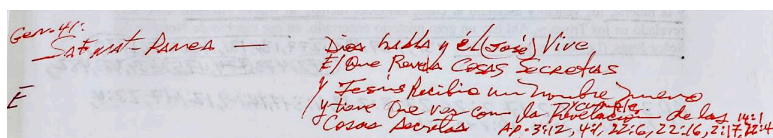 Gen. 41: Safnat-Panea — Dios habla y él (José) Vive
El Que Revela Cosas Secretas
E y Jesús Recibio un nombre nuevo
y tiene Que ver con la Revelacion de las 14:1
Cosas Secretas Ap. 3:12, 4:1, 22:6, 22:16, 2:17, 22:4